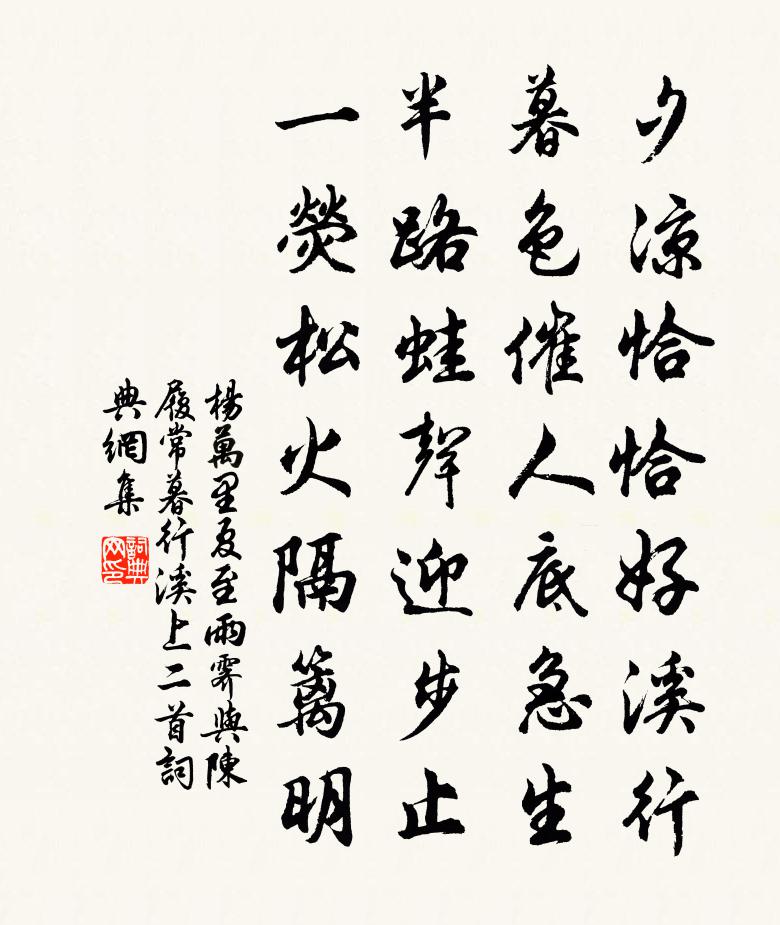 夕涼恰恰好溪行
暮色催人底急生
半路蛙聲迎步止
一熒松火隔籬明
楊萬里夏至雨霽與陳
履常暮行溪上二首詞
典網集
詞典網印